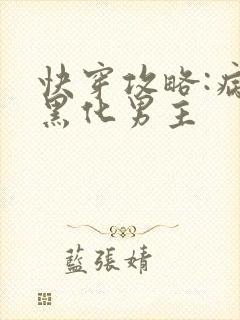 快穿攻略:病
黑化男主
藍張婧